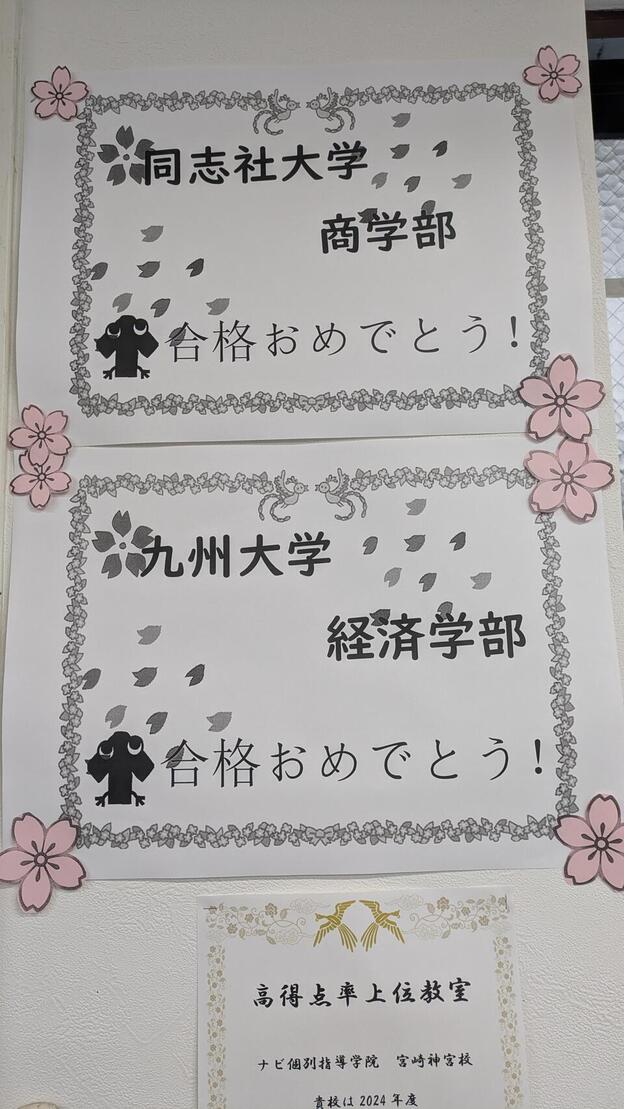 同志社大学
商学部
合格おめでとう!
九州大学
経済学部
合格おめでとう!
高得点率上位教室
ナビ個別指導学院 宮崎神宮校
貴校は2024年度